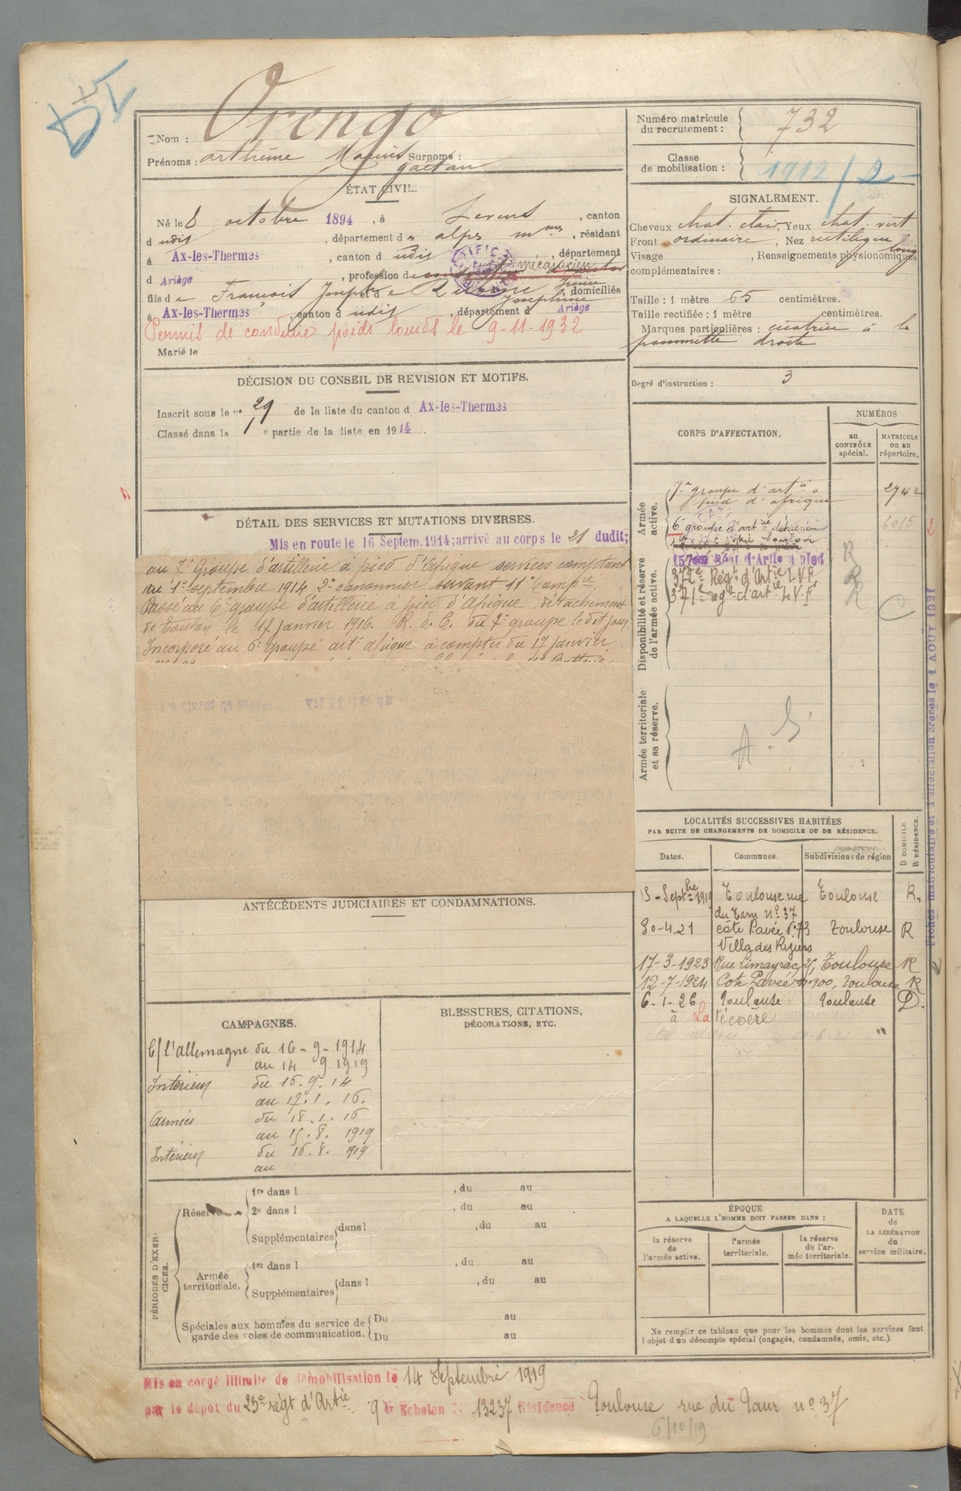 Nom : Orengo
Prénoms : Arthème Marius Surnoms :
Gaëtan
Numéro matricule
du recrutement : 732
Classe
de mobilisation : 1912/2
ÉTAT CIVIL.
Né le 8 octobre 1894, à Levens, canton
d udit, département d alpes mmes, résidant
à Ax-les-Thermes, canton d udit, département
d Ariège, profession de mécanicien
fils de François Joseph et de Josephine, domiciliés
à Ax-les-Thermes, canton d udit, département d Ariège
Permis de conduire poids lourds le 9-11-1932
Marié le
SIGNALEMENT.
Cheveux chat. clair, Yeux chat. vert
Front ordinaire, Nez rectiligne
Visage long, Renseignements physionomiques
complémentaires :
Taille : 1 mètre 65 centimètres.
Taille rectifiée : 1 mètre centimètres.
Marques particulières : cicatrice à la
pommette droite
Degré d'instruction : 3
DÉCISION DU CONSEIL DE REVISION ET MOTIFS.
Inscrit sous le n° 29 de la liste du canton d Ax-les-Thermes
Classé dans la 1e partie de la liste en 1914.
DÉTAIL DES SERVICES ET MUTATIONS DIVERSES.
Mis en route le 16 Septem. 1914; arrivé au corps le 21 dudit;
au 7e Groupe d'artillerie à pied d'Afrique services comptant
du 1er septembre 1914 2e canonnier servant 11e Compie
Passé au 6e groupe d'artillerie à pied d'Afrique, détachement
de Toulon le 17 janvier 1916. R. d. C. du 7e groupe le dit jour
Incorporé au 6e groupe arte afrique à compter du 17 janvier
CORPS D'AFFECTATION.
NUMÉROS
AU CONTRÔLE spécial.
MATRICULE OU AU répertoire.
Armée active.
7e groupe d'artie à
pied d'afrique
2742
6e groupe d'artrie
6015
Disponibilité et réserve de l'armée active.
157em Régt d'Artie à pied R
372e Régt d'Artie L.V.F. R
371e régt d'art. L.V.F R
Armée territoriale et sa réserve.
LOCALITÉS SUCCESSIVES HABITÉES
PAR SUITE DE CHANGEMENTS DE DOMICILE OU DE RÉSIDENCE.
Dates. Communes. Subdivisions de région
D DOMICILE. R RÉSIDENCE.
15-Septbre 1919 Toulouse rue Toulouse R.
du Taur n° 37
30-4-21 côte Pavée n° 73 Toulouse R
Villa des Rosiers
17-3-1923 Rue Limayrac Toulouse R
12-7-1924 Cote Pavée n° 100, Toulouse R
6-1-26 Toulouse Toulouse D.
Fiches matriculaire et d'affectation créées le 1 AOUT 1931
ANTÉCÉDENTS JUDICIAIRES ET CONDAMNATIONS.
CAMPAGNES.
C/ l'allemagne du 16-9-1914
au 14 9 1919
Intérieur du 16.9.14
au 17.1.16.
Armées du 18.1.16
au 15.8.1919
Intérieur du 16.8.1919
au
BLESSURES, CITATIONS,
DÉCORATIONS, ETC.
PÉRIODES D'EXERCICES.
Réserve
1re dans l , du au
2e dans l , du au
Supplémentaires dans l , du au
Armée territoriale.
1re dans l , du au
Supplémentaires dans l , du au
Spéciales aux hommes du service de garde des voies de communication.
Du au
Du au
ÉPOQUE
A LAQUELLE L'HOMME DOIT PASSER DANS :
la réserve de l'armée active.
l'armée territoriale.
la réserve de l'armée territoriale.
DATE
de
LA LIBÉRATION
du
service militaire.
Ne remplir ce tableau que pour les hommes dont les services font
l'objet d'un décompte spécial (engagés, condamnés, omis, etc.).
Mis en congé illimité de démobilisation le 14 Septembre 1919
par le dépôt du 23e régt d'Artie 9e Echelon N° 13237 Résidence Toulouse rue du Taur n° 37
6/10/19